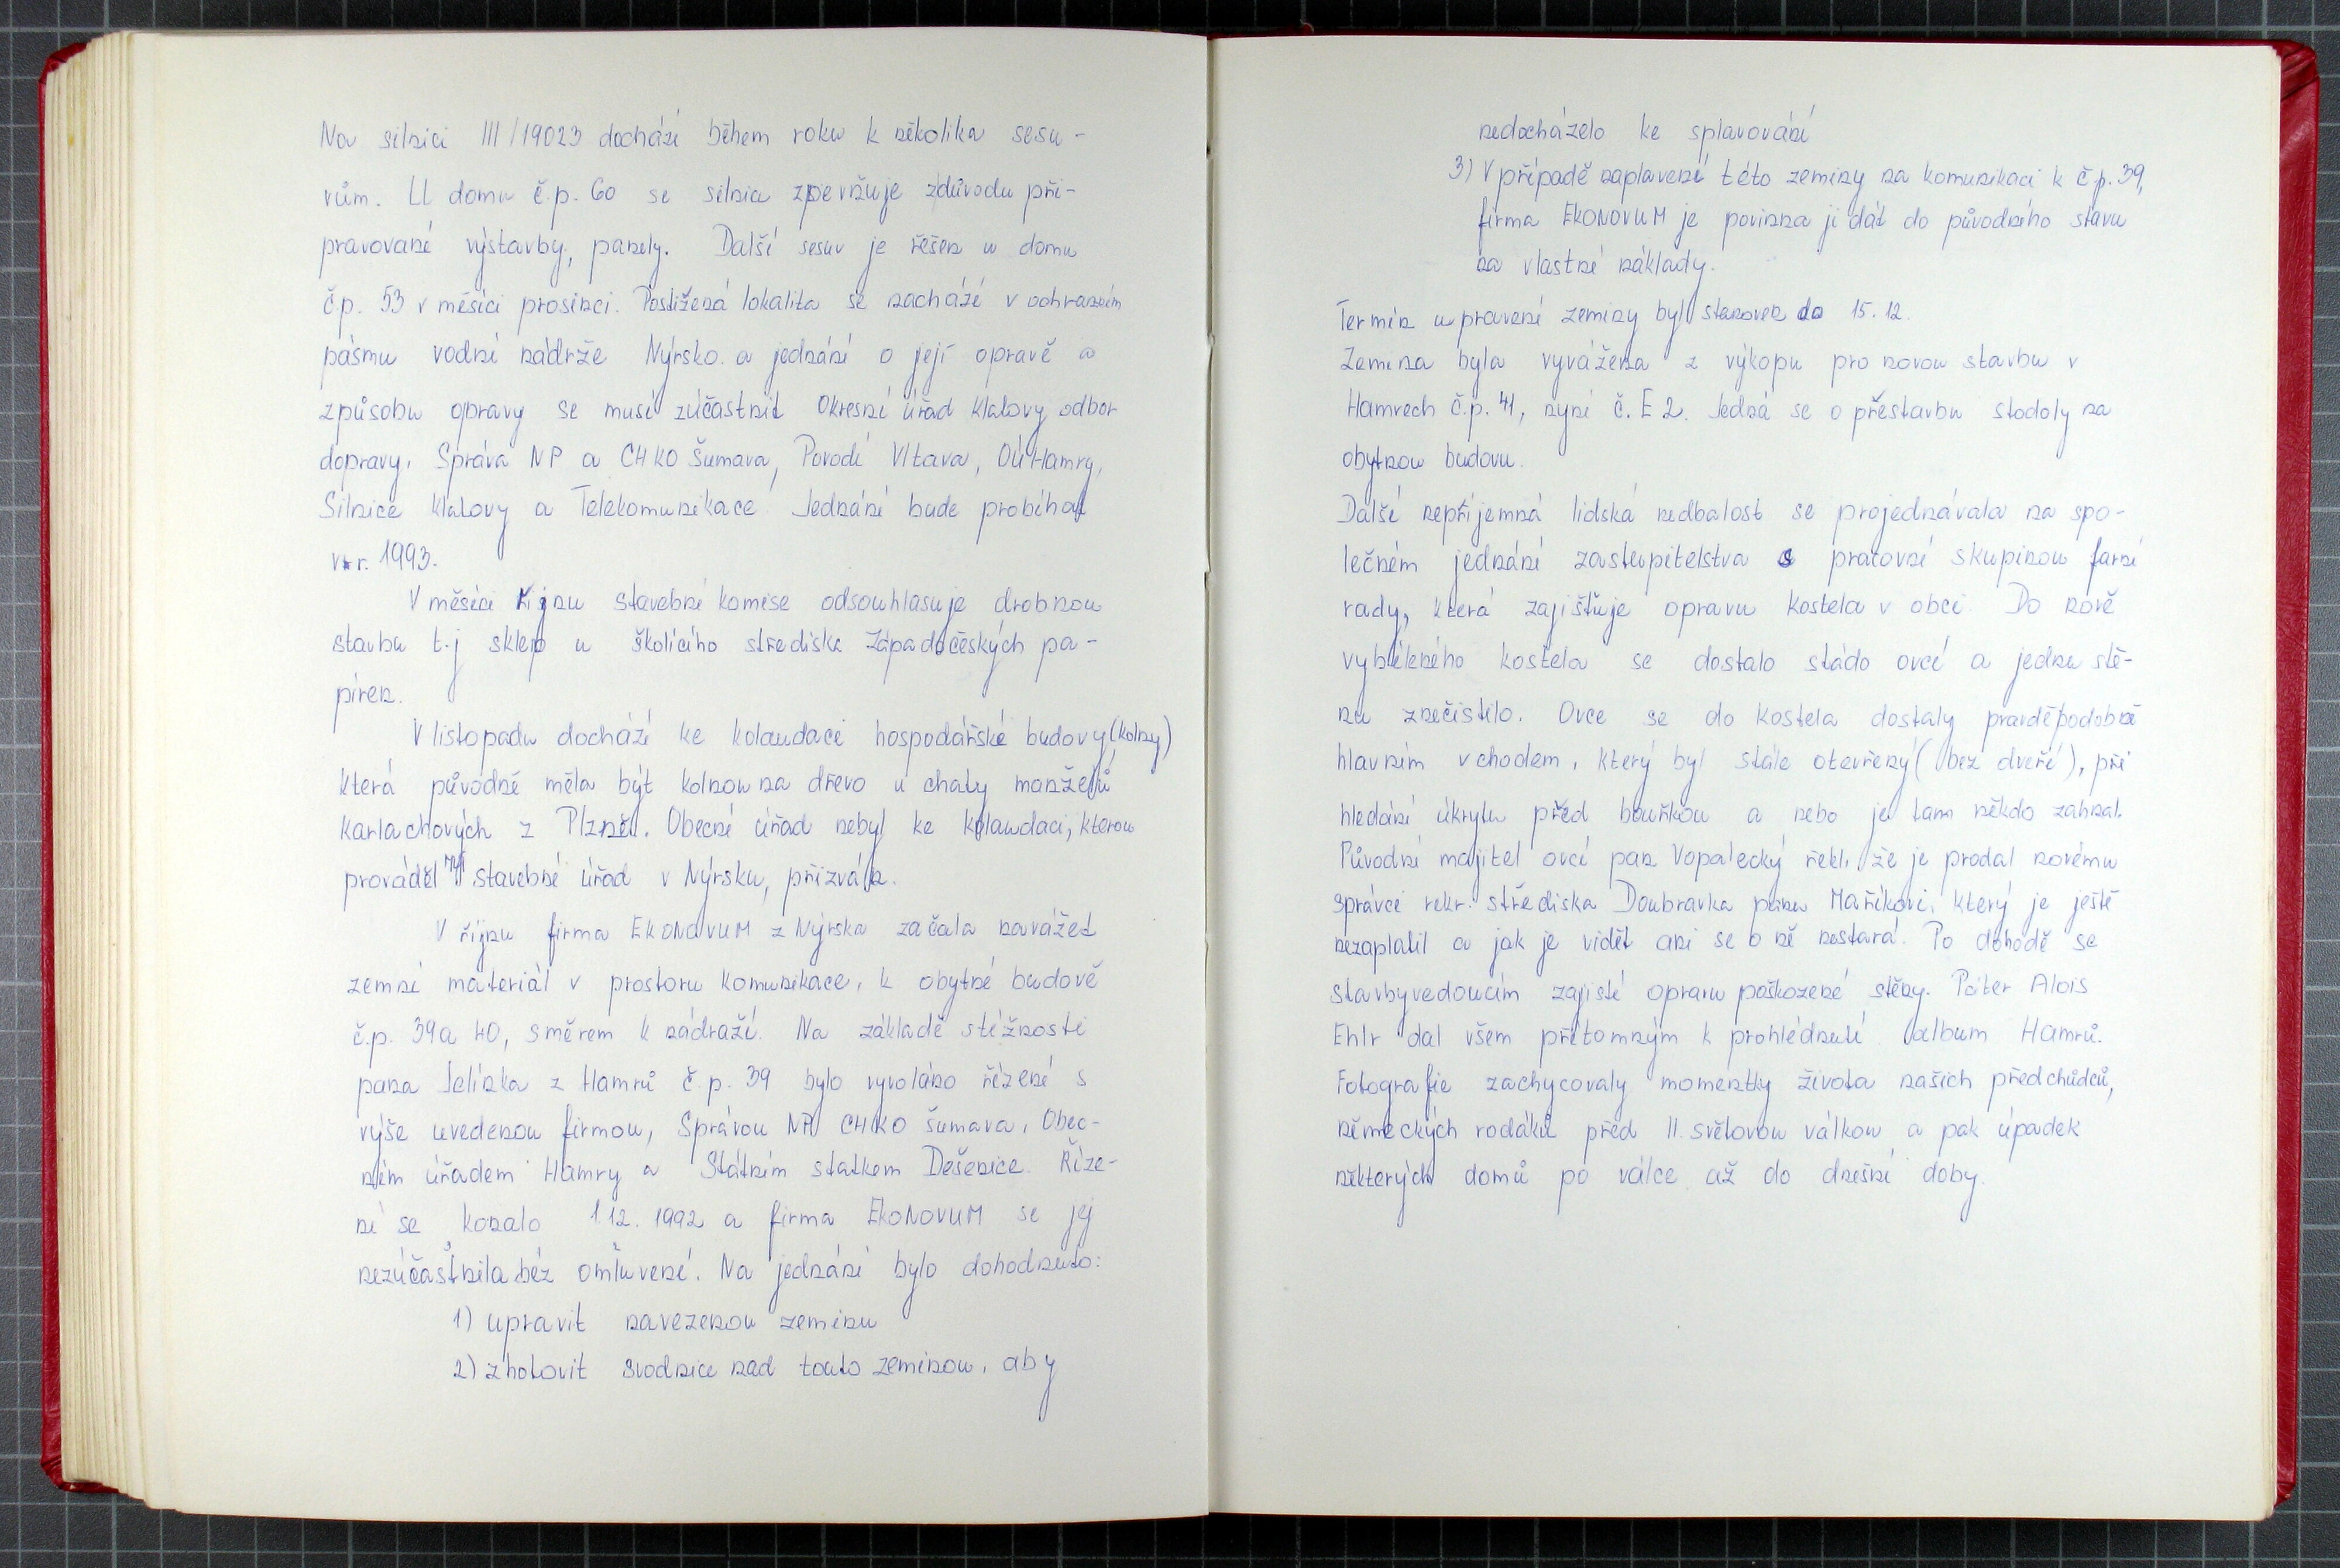 Na silnici III/19023 dochází během roku k několika sesu-
vům. U domu č.p. 60 se silnice zpevňuje zdůvodu při-
pravované výstavby, panely. Další sesuv je řešen u domu
č.p. 53 v měsíci prosinci. Postižená lokalita se nachází v ochranném
pásmu vodní nádrže Nýrsko. a jednání o její opravě a
způsobu opravy se musí zúčastnit Okresní úřad Klatovy odbor
dopravy, Správa NP a CHKO Šumava, Povodí Vltava, OÚ Hamry,
Silnice Klatovy a Telekomunikace. Jednání bude probíhat
v r. 1993.
V měsíci říjnu stavební komise odsouhlasuje drobnou
stavbu t.j sklep u školícího střediska Západočeských pa-
píren.
V listopadu dochází ke kolaudaci hospodářské budovy (kolny)
která původně měla být kolnou na dřevo u chaty manželů
Karlachových z Plzně. Obecní úřad nebyl ke kolaudaci, kterou
prováděl stavební úřad v Nýrsku, přizván.
V říjnu firma EKONOVUM z Nýrska začala navážet
zemní materiál v prostoru komunikace, k obytné budově
č.p. 39a 40, směrem k nádraží. Na základě stížnosti
pana Jelínka z Hamrů č.p. 39 bylo vyvoláno řízení s
výše uvedenou firmou, Správou NP CHKO šumava, Obec-
ním úřadem Hamry a Státním statkem Dešenice. Říze-
ní se konalo 1.12. 1992 a firma EKONOVUM se jej
nezúčastnila bez omluvení. Na jednání bylo dohodnuto:
1) upravit navezenou zeminu
2) zhotovit svodnice nad touto zeminou, aby
nedocházelo ke splavování
3) V případě naplavení této zeminy na komunikaci k č.p. 39,
firma EKONOVUM je povinna ji dát do původního stavu
na vlastní náklady.
Termín upravení zeminy byl stanoven do 15. 12.
Zemina byla vyvážena z výkopu pro novou stavbu v
Hamrech č.p. 41, nyní č. E 2. Jedná se o přestavbu stodoly na
obytnou budovu.
Další nepříjemná lidská nedbalost se projednávala na spo-
lečném jednání zastupitelstva s pracovní skupinou farní
rady, která zajišťuje opravu kostela v obci Do nově
vybíleného kostela se dostalo stádo ovcí a jednu stě-
nu znečistilo. Ovce se do kostela dostaly pravděpodobně
hlavním vchodem, který byl stále otevřený (bez dveří), při
hledání úkrytu před bouřkou a nebo je tam někdo zahnal.
Původní majitel ovcí pan Vopalecký řekl, že je prodal novému
správci rekr. střediska Doubravka panu Maříkovi, který je ještě
nezaplatil a jak je vidět ani se o ně nestará. Po dohodě se
stavbyvedoucím zajistí opravu poškozené stěny. Páter Alois
Ehlr dal všem přítomným k prohlédnutí album Hamrů.
Fotografie zachycovaly momentky života našich předchůdců,
německých rodáků před II. světovou válkou a pak úpadek
některých domů po válce až do dnešní doby.